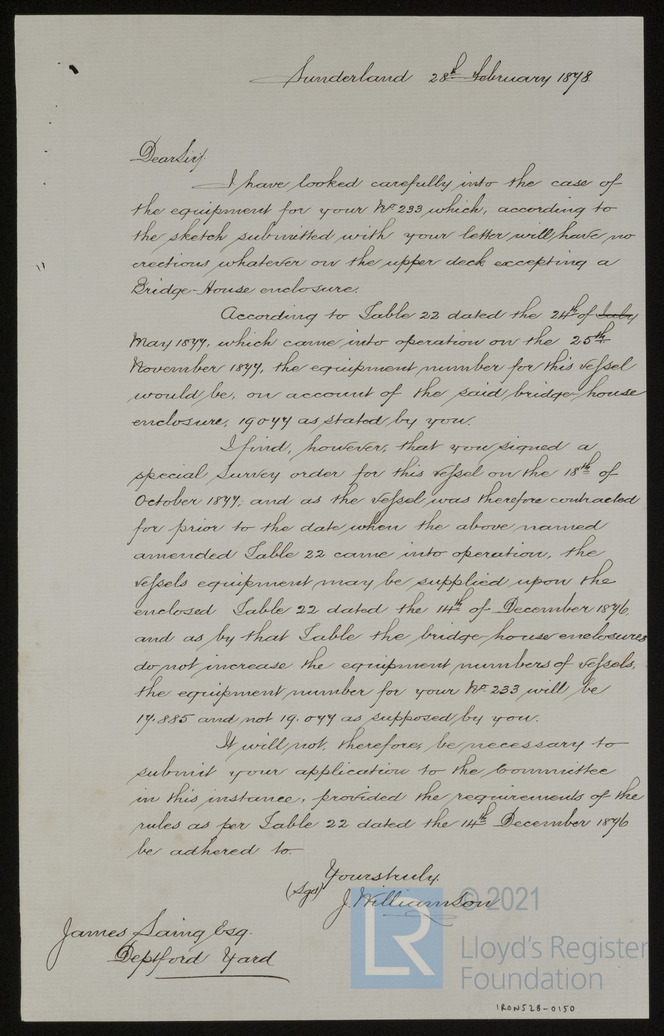 Sunderland 28th February 1878
Dear Sir,
I have looked carefully into the case of
the equipment for your No. 233 which, according to
the sketch submitted with your letter will have no
erections whatever on the upper deck excepting a
Bridge-House enclosure.
According to Table 22 dated the 24th of July
May 1877, which came into operation on the 25th
November 1877, the equipment number for this vessel
would be, on account of the said bridge-house
enclosure, 19077 as stated by you.
I find, however, that you signed a
special Survey order for this vessel on the 18th of
October 1877, and as the vessel was therefore contracted
for prior to the date when the above named
amended Table 22 came into operation, the
vessels equipment may be supplied upon the
enclosed Table 22 dated the 14th of December 1876
and as by that Table the bridge-house enclosures
do not increase the equipment numbers of vessels,
the equipment number for your No. 233 will be
17.885 and not 19.077 as supposed by you.
It will not, therefore, be necessary to
submit your application to the Committee
in this instance, provided the requirements of the
rules as per Table 22 dated the 14th December 1876
be adhered to.
Yours truly,
(Sgd) J. Williamson
James Laing Esq.
Deptford Yard
© 2021
LR
Lloyd's Register
Foundation
IRON528-0150